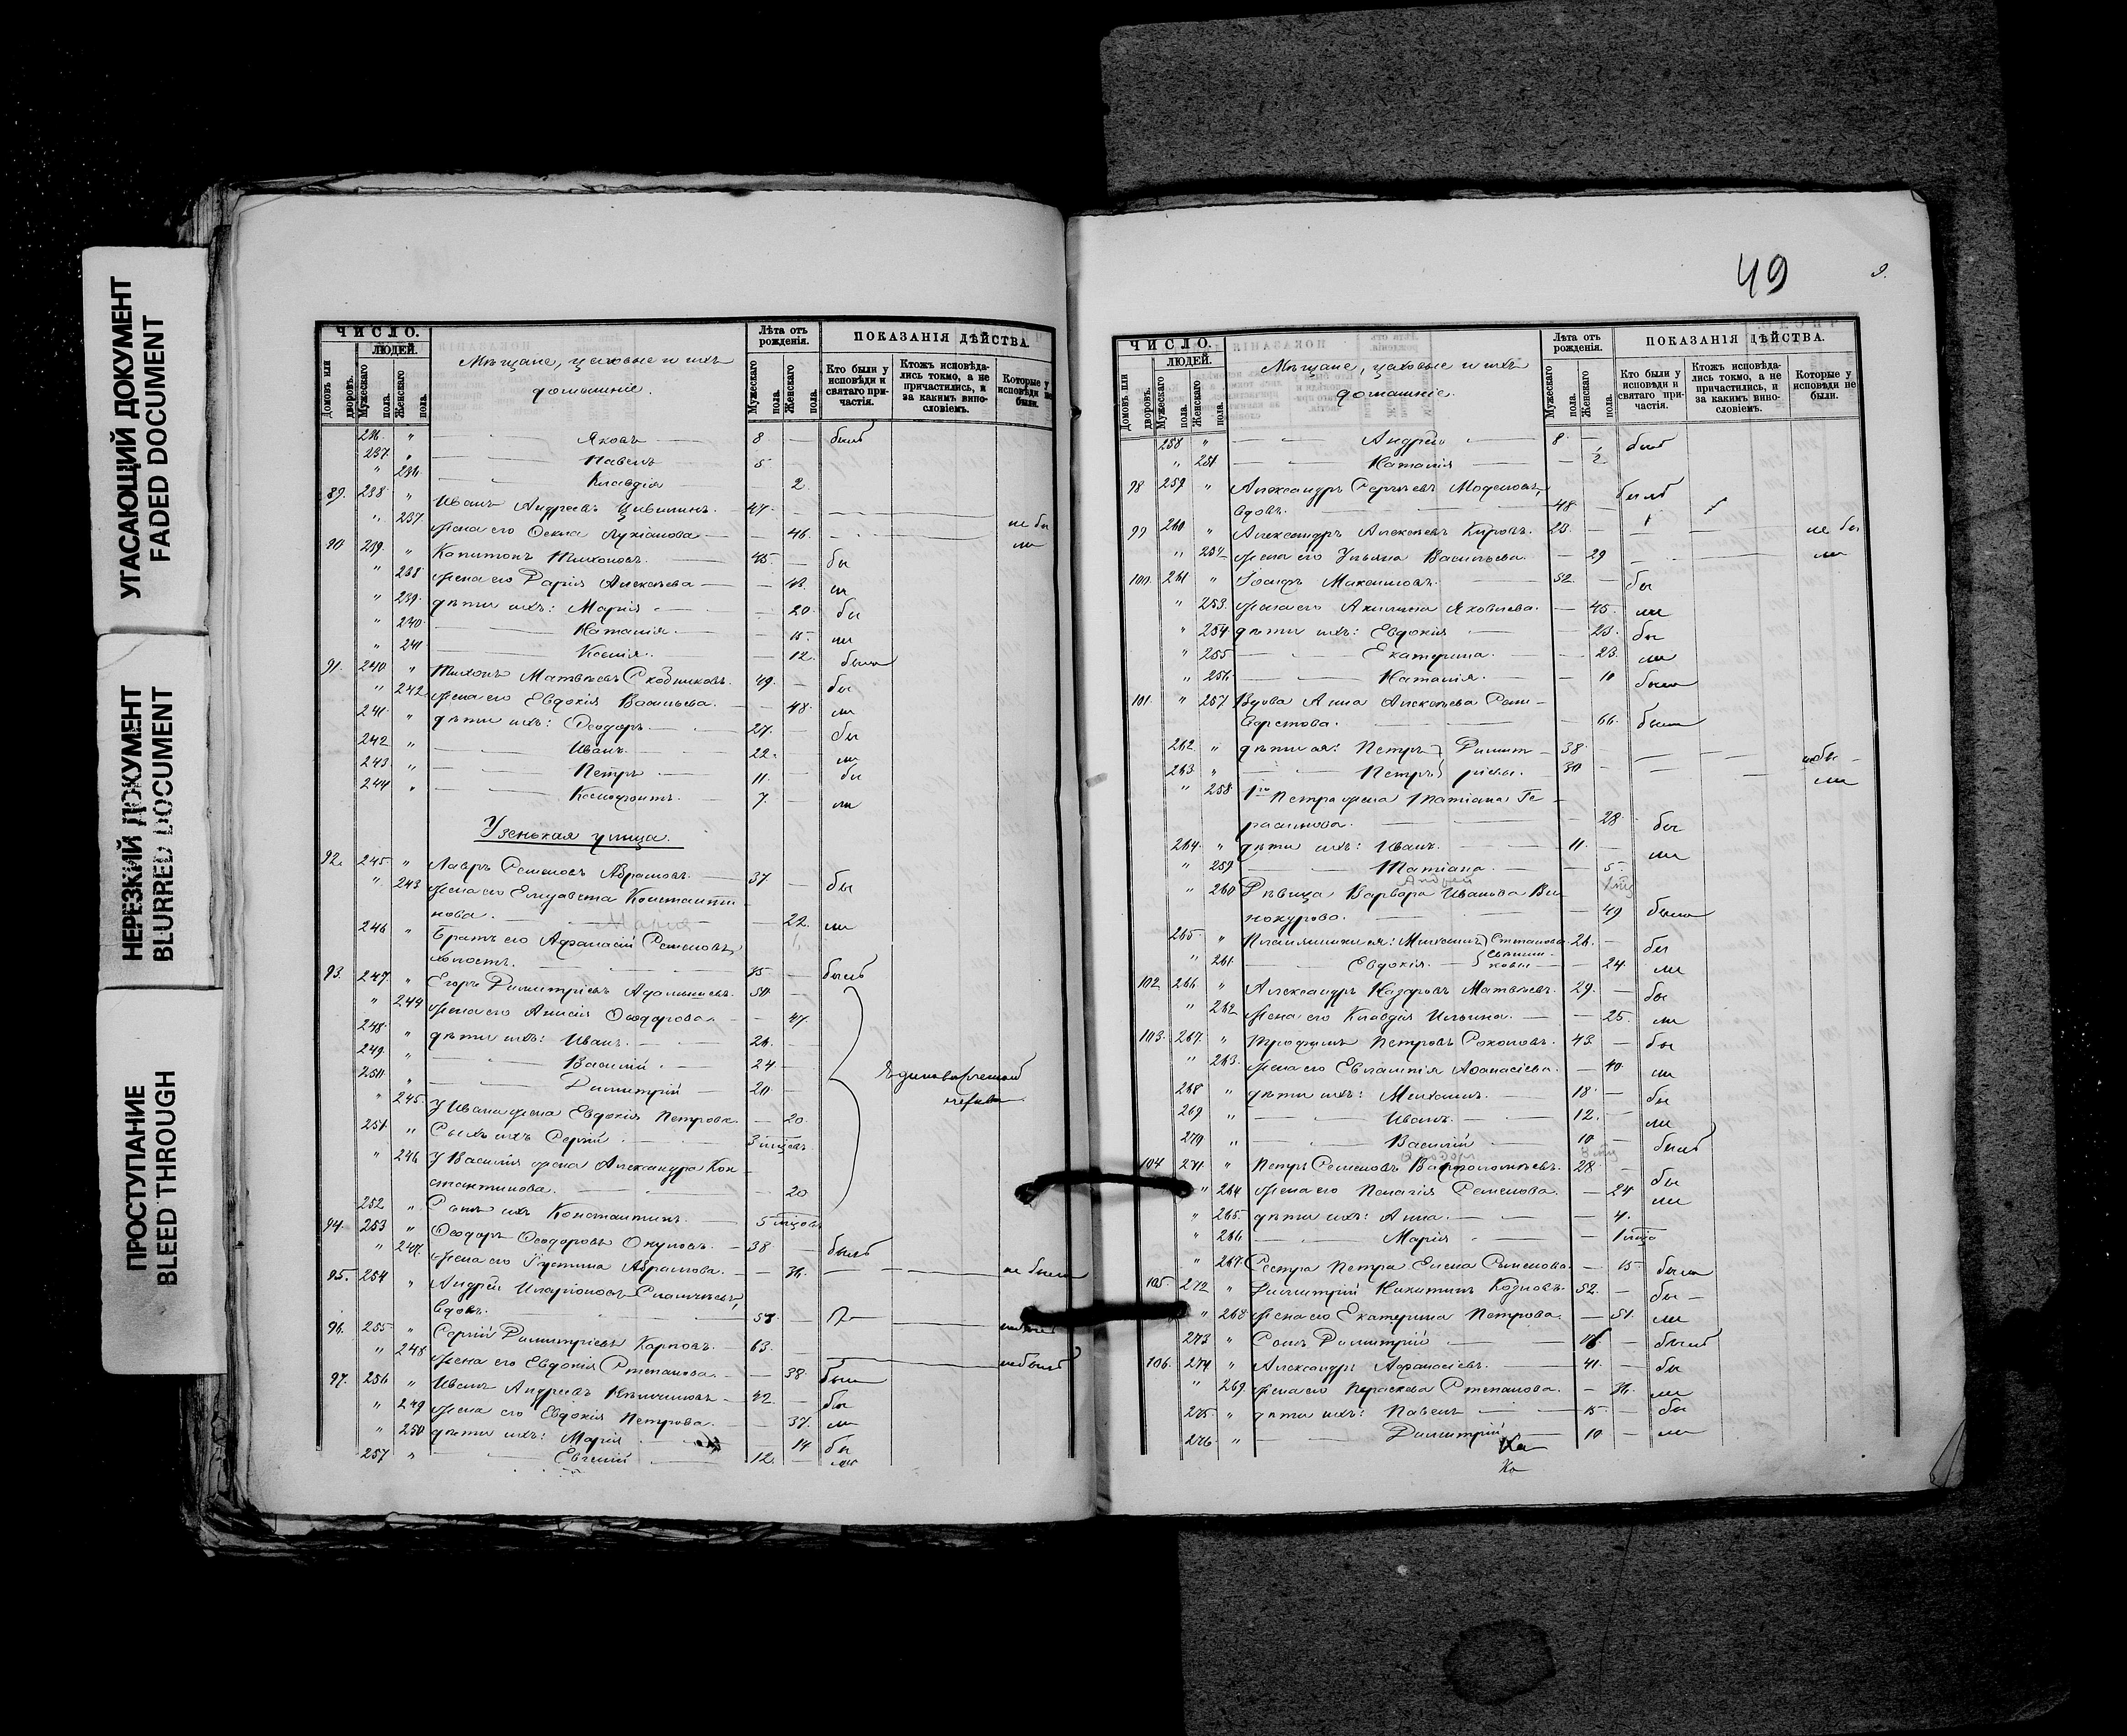 УГАСАЮЩИЙ ДОКУМЕНТ
FADED DOCUMENT
НЕРЕЗКИЙ ДОКУМЕНТ
BLURRED DOCUMENT
ПРОСТУПАНИЕ
BLEED THROUGH
ЧИСЛО.
ЛЮДЕЙ.
Домовъ или дворовъ.
Мужескаго пола.
Женскаго пола.
Мѣщане, цеховые и ихъ
домашніе.
Лѣта отъ рожденія.
Мужескаго пола.
Женскаго пола.
ПОКАЗАНІЯ ДѢЙСТВА.
Кто были у исповѣди и святаго причастія.
Ктожъ исповѣдались токмо, а не причастились, и за какимъ винословіемъ.
Которые у исповѣди не были.
236. " Яковъ 8 — былъ
237. " Павелъ 5 —
" 236. Клавдія — 2.
89. 238. " Иванъ Андреевъ 47. —
" 237. Жена его Ѳекла Лукіанова — 46. не бы ли
90 239. " Капитонъ Тихоновъ. 45. — бы
" 238 Жена его Дарія Алексѣева — ли
" 239. дѣти ихъ: Марія — 20. бы
" 240. Наталія. — 15. ли
" 241 Ксенія. — 12. была
91. 240 " Тихонъ Матвѣевъ Скобниковъ. 49. — бы
" 242 Жена его Евдокія Васильева. — 48. ли
241. " дѣти ихъ: Ѳеодоръ 27. бы
242 " Иванъ. 22. ли
243. " Петръ 11. бы
244 " Ксенофонтъ. 7. ли
Узенькая улица.
92. 245. " Лавръ Семеновъ Абрамовъ. 37 — бы
" 243 Жена его Елизавета Константи
нова. — 22. ли
Марія
246 " Братъ его Аѳанасій Семеновъ,
холостъ. 35 — былъ
93. 247. " Егоръ Димитріевъ 50. —
" 244 Жена его Анисія Ѳеодорова — 47.
248. " дѣти ихъ: Иванъ. 26. —
249. " Василій 24. —
250. " Димитрій 20 —
" 245. У Ивана жена Евдокія Петрова — 20.
251 " Сынъ ихъ Сергій 3 мѣсяцевъ
" 246 У Василія жена Александра Кон
стантинова. — 20
252 " Сынъ ихъ Константинъ. 5 мѣсяцевъ
94. 253 " Ѳеодоръ Ѳеодоровъ Окуловъ. 38 — былъ
" 247. Жена его Іустина Абрамова. — 36. не была
95. 254 " Андрей Иларіоновъ
вдовъ. 57 —
96. 255 " Сергій Димитріевъ Карповъ. 63. —
" 248 Жена его Евдокія Степанова — 38. была
97. 256 " Иванъ Андреевъ 42. — бы
" 249 Жена его Евдокія Петрова. — 37. ли
" 250 дѣти ихъ: Марія 14 бы
257 " Евгеній 12. — ли
49
9.
ЧИСЛО.
ЛЮДЕЙ.
Домовъ или дворовъ.
Мужескаго пола.
Женскаго пола.
Мѣщане, цеховые и ихъ
домашніе.
Лѣта отъ рожденія.
Мужескаго пола.
Женскаго пола.
ПОКАЗАНІЯ ДѢЙСТВА.
Кто были у исповѣди и святаго причастія.
Ктожъ исповѣдались токмо, а не причастились, и за какимъ винословіемъ.
Которые у исповѣди не были.
258 " Андрей 8. — былъ
" 251. Наталія — 2
98 259 " Александръ Сергѣевъ Моделовъ,
вдовъ. 48 — былъ
99 260 " Александръ Алексѣевъ Кировъ. 23. — не бы
" 252. Жена его Ульяна Васильева. — 29 ли
100. 261 " Іосифъ Максимовъ. 52. — бы
" 253. Жена его Акилина Яковлева. — 45. ли
" 254. дѣти ихъ: Евдокія — 23. бы
" 255 Екатерина. — 23. ли
" 256. Наталія. — 10 была
101. " 257 Вдова Анна Алексѣева
— 66. была
262 " дѣти ея: Петръ Димит 38. — не бы
263 " Петръ ріевы. 30 — ли
" 258 1го Петра жена Татіана Ге
расимова. — 28. бы
264. " дѣти ихъ: Иванъ. 11. — ли
" 259 Татіана. — 5.
Андрей
" 260 Дѣвица Варвара Иванова Ви
нокурова. — 49 была
265. " Племянники ея: Михаилъ Степановы 26. — бы
" 261 Евдокія — 24. ли
102 266 " Александръ Назаровъ Матвѣевъ. 29. — бы
" 262 Жена его Клавдія Ильина. — 25. ли
103. 267. " Трофимъ Петровъ Соколовъ. 43. — бы
" 263. Жена его Евлампія Аѳанасіева. — 40. ли
268 " дѣти ихъ: Михаилъ. 18. — бы
269 " Иванъ. 12. — ли
270 " Василій 10 — былъ
Ѳеодоръ
104. 271. " Петръ Семеновъ Варѳоломѣевъ. 28. — бы
" 264 Жена его Пелагія Семенова. — 24 ли
" 265. дѣти ихъ: Анна. — 4.
" 266 Марія — 1 мѣсяца
" 267 Сестра Петра Елена Семенова. — 15. была
105. 272 " Димитрій Никитинъ Козловъ. 52. — бы
" 268 Жена его Екатерина Петрова. — 51. ли
273 " Сынъ Димитрій 16 — былъ
106. 274 " Александръ Аѳанасіевъ. 41. — бы
" 269 Жена его Параскева Степанова. — 36. ли
275. " дѣти ихъ: Павелъ 15. — бы
276. " Димитрій 10 — ли